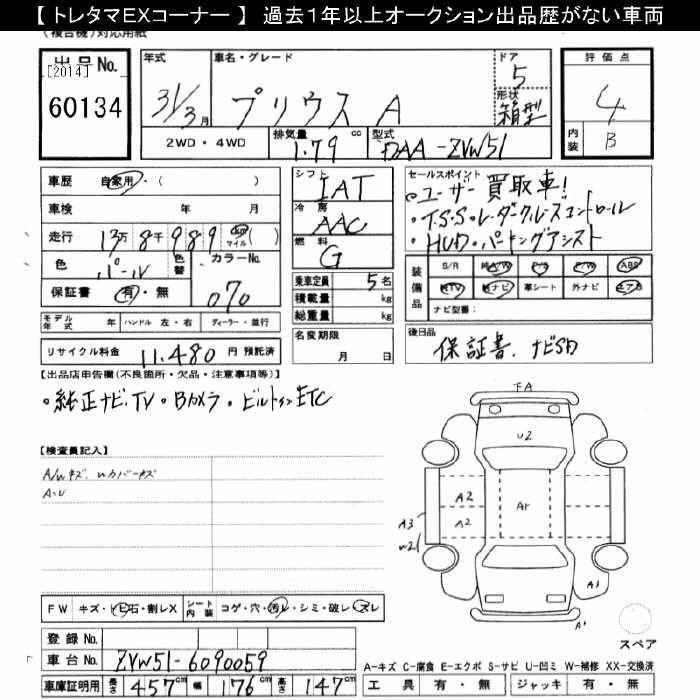 【トレタマEXコーナー】 過去1年以上オークション出品歴がない車両
(複合機)対応用紙
出品No.
[2014]
60134
年式
31/3月
車名・グレード
プリウス A
ドア
5
形状
箱型
評価点
4
内装
B
2WD・4WD
排気量
1.79 cc
型式
DAA-ZVW51
車歴 自家用・( )
車検 年 月
走行 13万8千989 km マイル ( )
色 パール 色替
カラーNo.
070
保証書 有・無
シフト
IAT
冷房
AAC
燃料
G
乗車定員 5名
積載量 kg
総重量 kg
セールスポイント
・ユーザー買取車!
・T.S.S・レーダークルーズコントロール
・HUD・パーキングアシスト
装備品
S/R 純A/W P/S P/W ABS
純TV 純ナビ 革シート 外ナビ エアB
ナビ型番:
モデル年式 年 ハンドル 左・右 ディーラー・並行
リサイクル料金 11,480 円 預託済
名変期限
月 日
後日品
保証書、ナビSD
【出品店申告欄(不良箇所・欠品・注意事項等)】
・純正ナビ、TV・Bカメラ・ビルトインETC
【検査員記入】
A/Wキズ、
FA
U2
A2
A2
A1
A3
W2
A1
A1
FW キズ・トビ石・割レX シート内装 コゲ・穴・汚レ・シミ・破レ・スレ
登録No.
車台No. ZVW51-6090059
車庫証明用 長さ 457cm 幅 176cm 高さ 147cm
スペア
A-キズ C-腐食 E-エクボ S-サビ U-凹ミ W-補修 XX-交換済
工具 有・無 ジャッキ 有・無